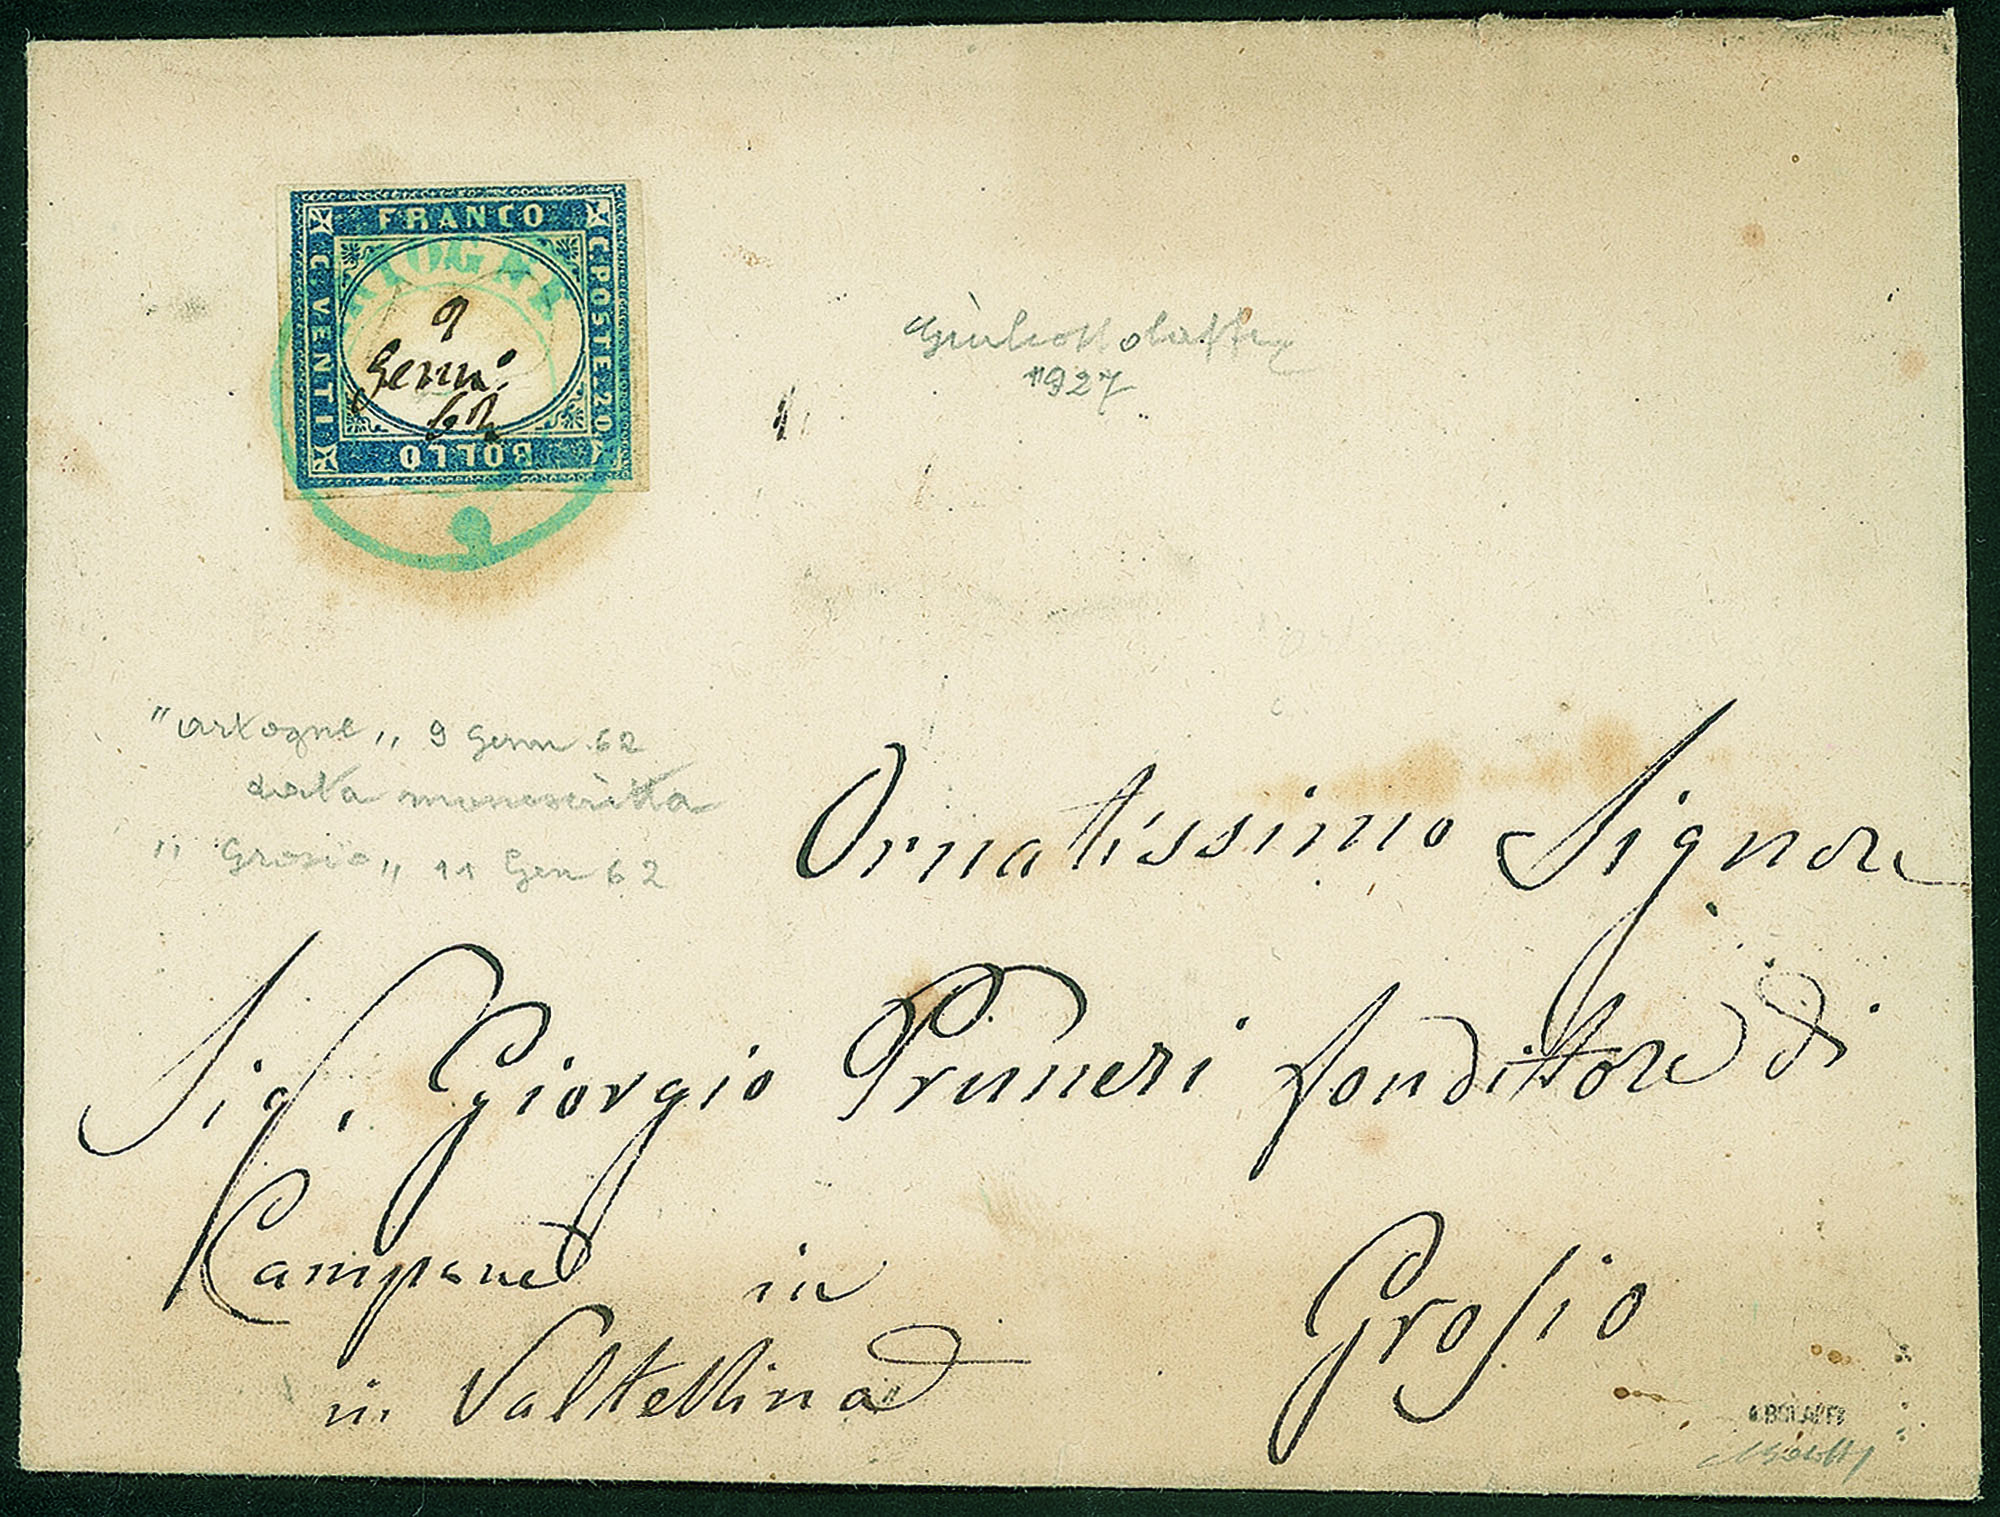 FRANCO
C. VENTI
C. POSTE 20
BOLLO
RTOGNE
9
Genn:
62
1927
"Artogne" 9 Genn 62
data manoscritta
"Grosio" 11 Gen 62
Ornatissimo Signore
Sig. Giorgio Pruneri fonditore di
Campane in Grosio
in Valtellina
A BOLAFFI